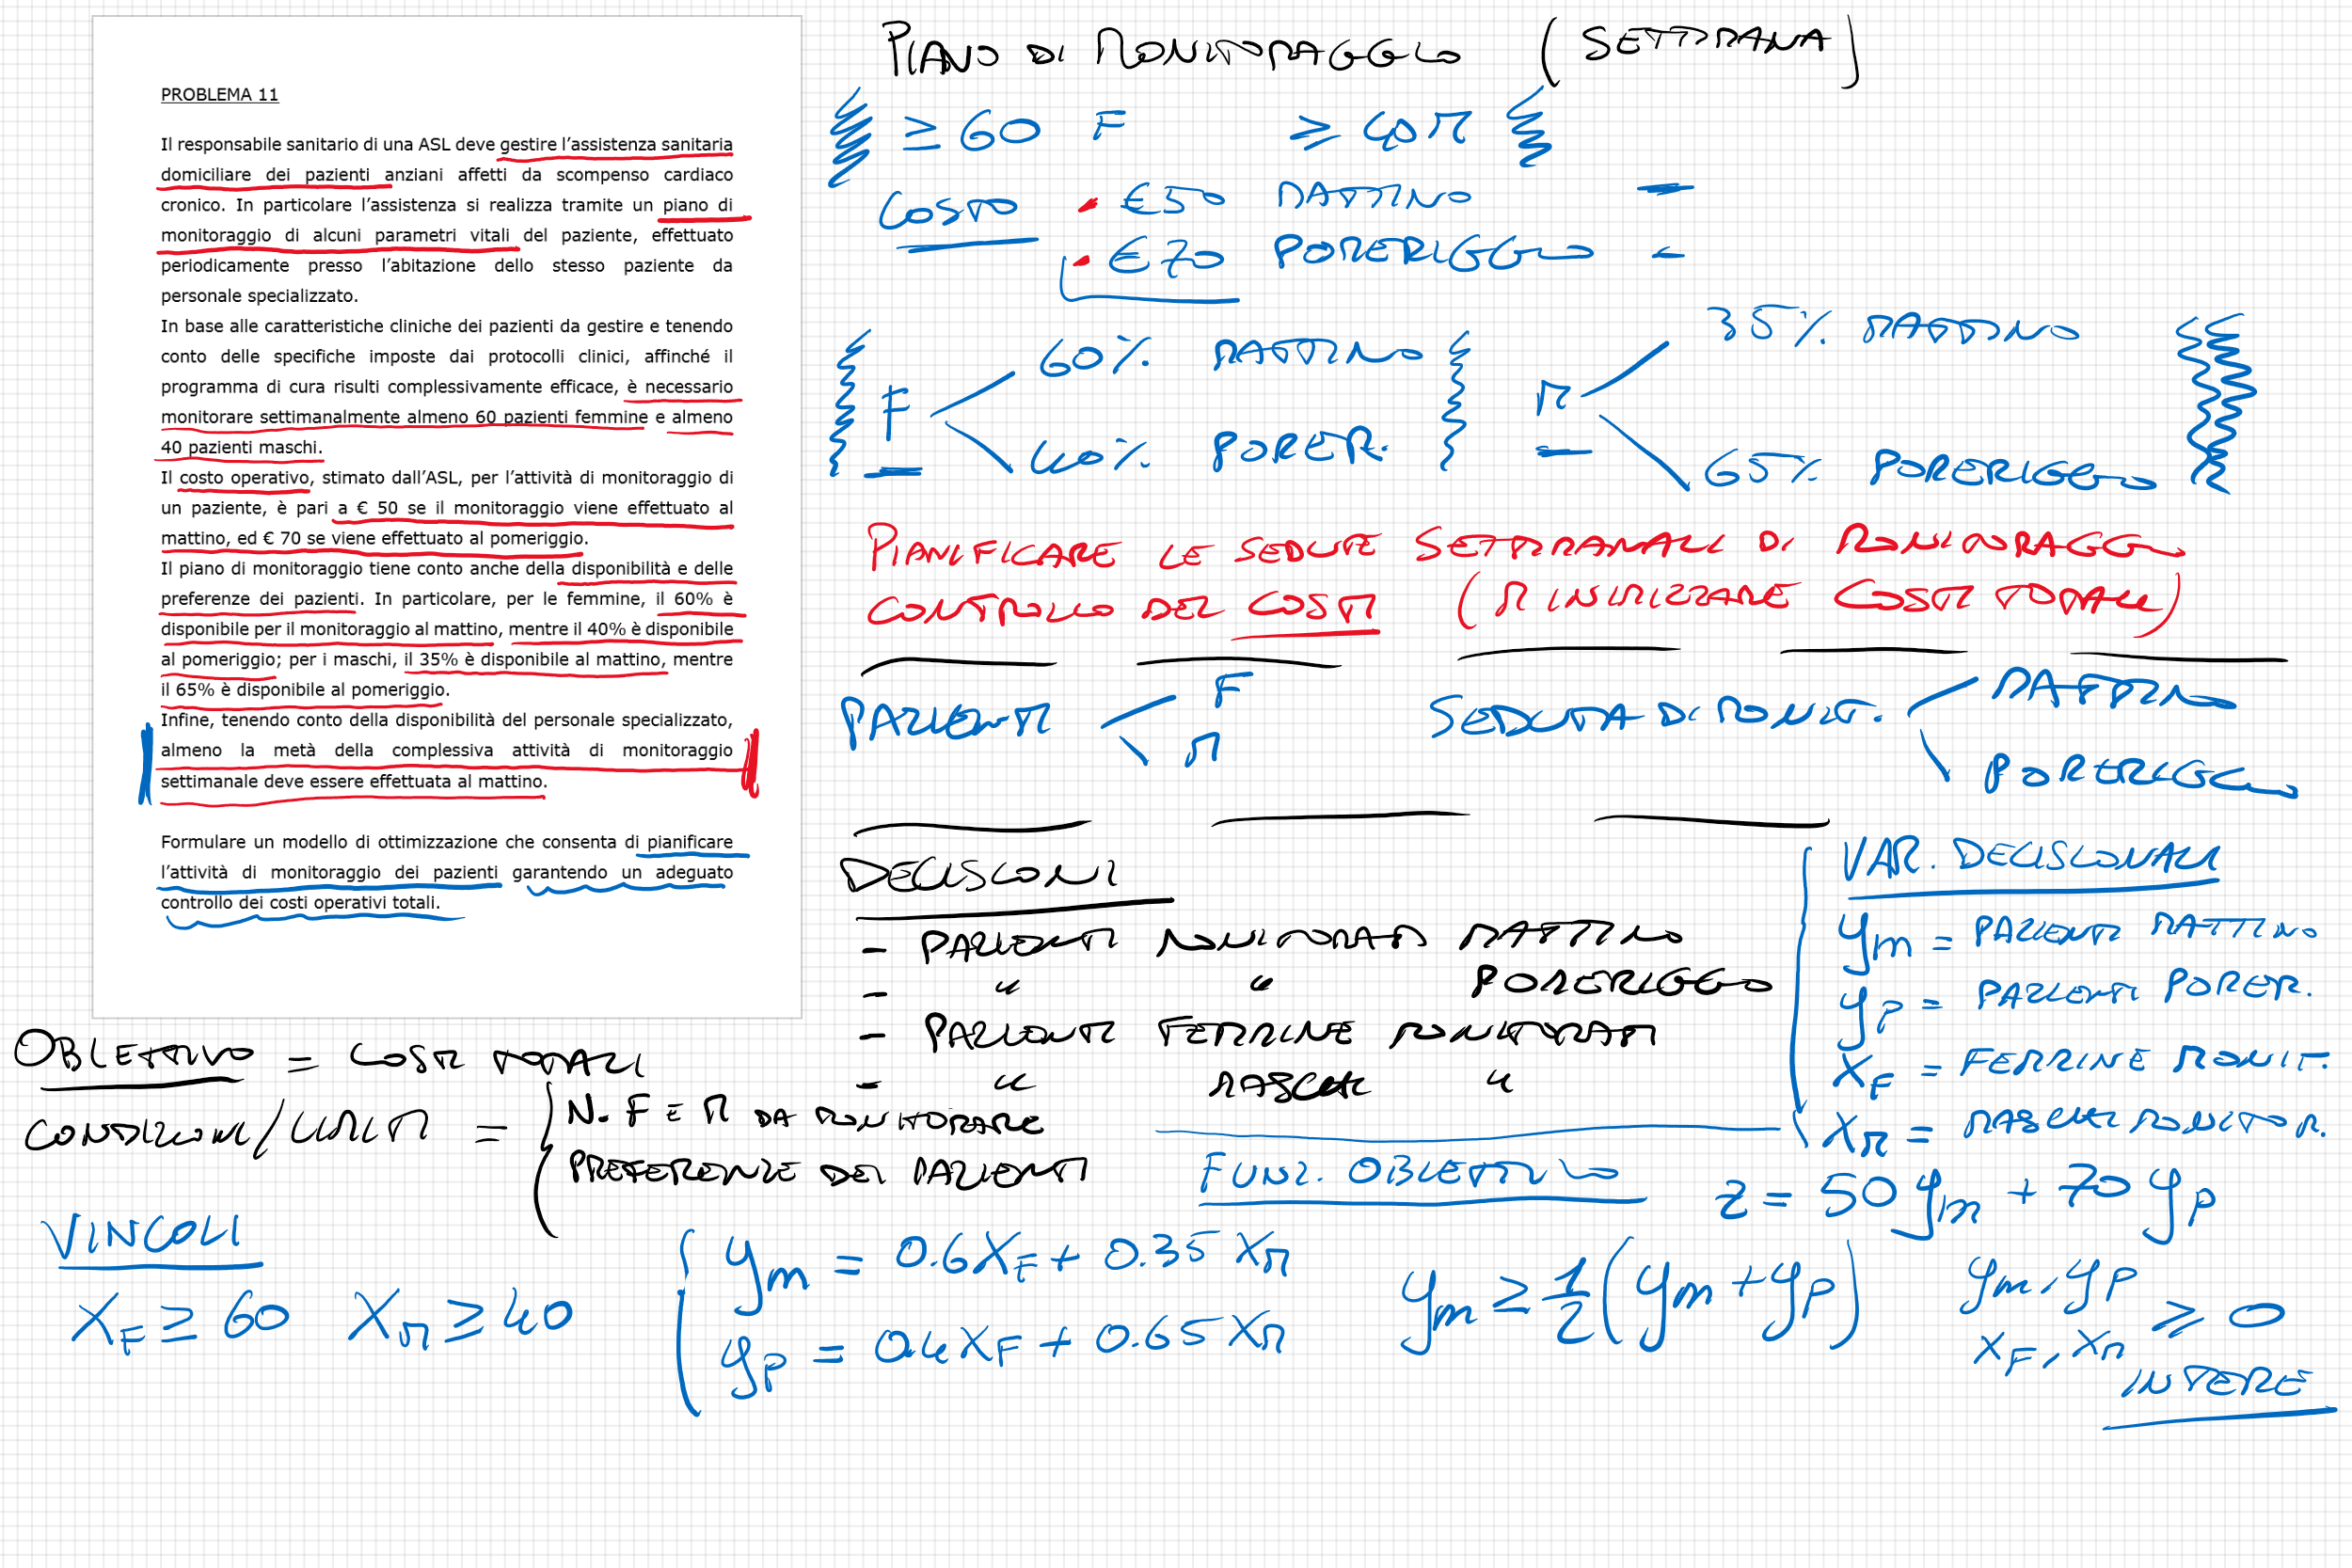 PROBLEMA 11
Il responsabile sanitario di una ASL deve gestire l'assistenza sanitaria
domiciliare dei pazienti anziani affetti da scompenso cardiaco
cronico. In particolare l'assistenza si realizza tramite un piano di
monitoraggio di alcuni parametri vitali del paziente, effettuato
periodicamente presso l'abitazione dello stesso paziente da
personale specializzato.
In base alle caratteristiche cliniche dei pazienti da gestire e tenendo
conto delle specifiche imposte dai protocolli clinici, affinché il
programma di cura risulti complessivamente efficace, è necessario
monitorare settimanalmente almeno 60 pazienti femmine e almeno
40 pazienti maschi.
Il costo operativo, stimato dall'ASL, per l'attività di monitoraggio di
un paziente, è pari a € 50 se il monitoraggio viene effettuato al
mattino, ed € 70 se viene effettuato al pomeriggio.
Il piano di monitoraggio tiene conto anche della disponibilità e delle
preferenze dei pazienti. In particolare, per le femmine, il 60% è
disponibile per il monitoraggio al mattino, mentre il 40% è disponibile
al pomeriggio; per i maschi, il 35% è disponibile al mattino, mentre
il 65% è disponibile al pomeriggio.
Infine, tenendo conto della disponibilità del personale specializzato,
almeno la metà della complessiva attività di monitoraggio
settimanale deve essere effettuata al mattino.
Formulare un modello di ottimizzazione che consenta di pianificare
l'attività di monitoraggio dei pazienti garantendo un adeguato
controllo dei costi operativi totali.
PIANO DI MONITORAGGIO (SETTIMANA)
≥ 60 F ≥ 40 M
COSTO • €50 MATTINO -
• €70 POMERIGGIO -
F 60% MATTINO
40% POMER.
M 35% MATTINO
65% POMERIGGIO
PIANIFICARE LE SEDUTE SETTIMANALI DI MONITORAGGIO
CONTROLLO DEI COSTI (MINIMIZZARE COSTI TOTALI)
PAZIENTI F
M
SEDUTA DI MONIT. MATTINO
POMERIGGIO
DECISIONI
- PAZIENTI MONITORATI MATTINO
- " " POMERIGGIO
- PAZIENTI FEMMINE MONITORATI
- " MASCHI "
VAR. DECISIONALI
ym = PAZIENTI MATTINO
yp = PAZIENTI POMER.
XF = FEMMINE MONIT.
XM = MASCHI MONITOR.
OBIETTIVO = COSTI TOTALI
CONDIZIONI/LIMITI = N. F E M DA MONITORARE
PREFERENZE DEI PAZIENTI
FUNZ. OBIETTIVO
z = 50 ym + 70 yp
VINCOLI
XF ≥ 60 XM ≥ 40
ym = 0.6XF + 0.35 XM
yp = 0.4XF + 0.65 XM
ym ≥ 1/2 (ym + yp)
ym, yp
XF, XM ≥ 0
INTERE